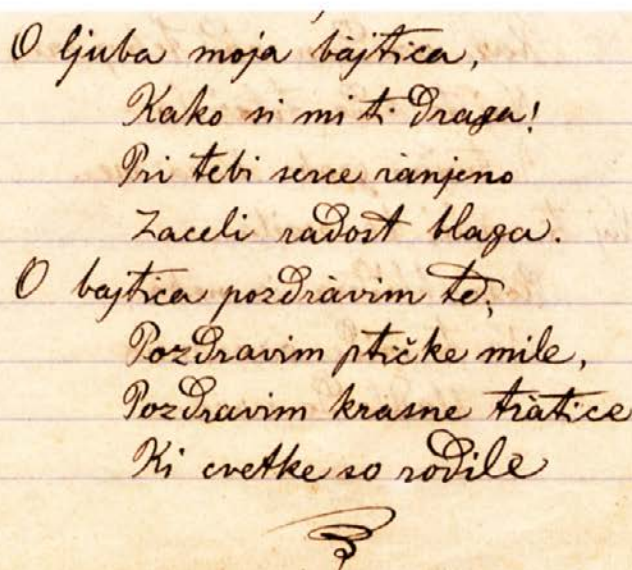 O ljuba moja bajtica,
Kako si mi ti draga!
Pri tebi serce ranjeno
Zaceli radost blaga.
O bajtica pozdravim te,
Pozdravim ptičke mile,
Pozdravim krasne tratice
Ki cvetke so rodile